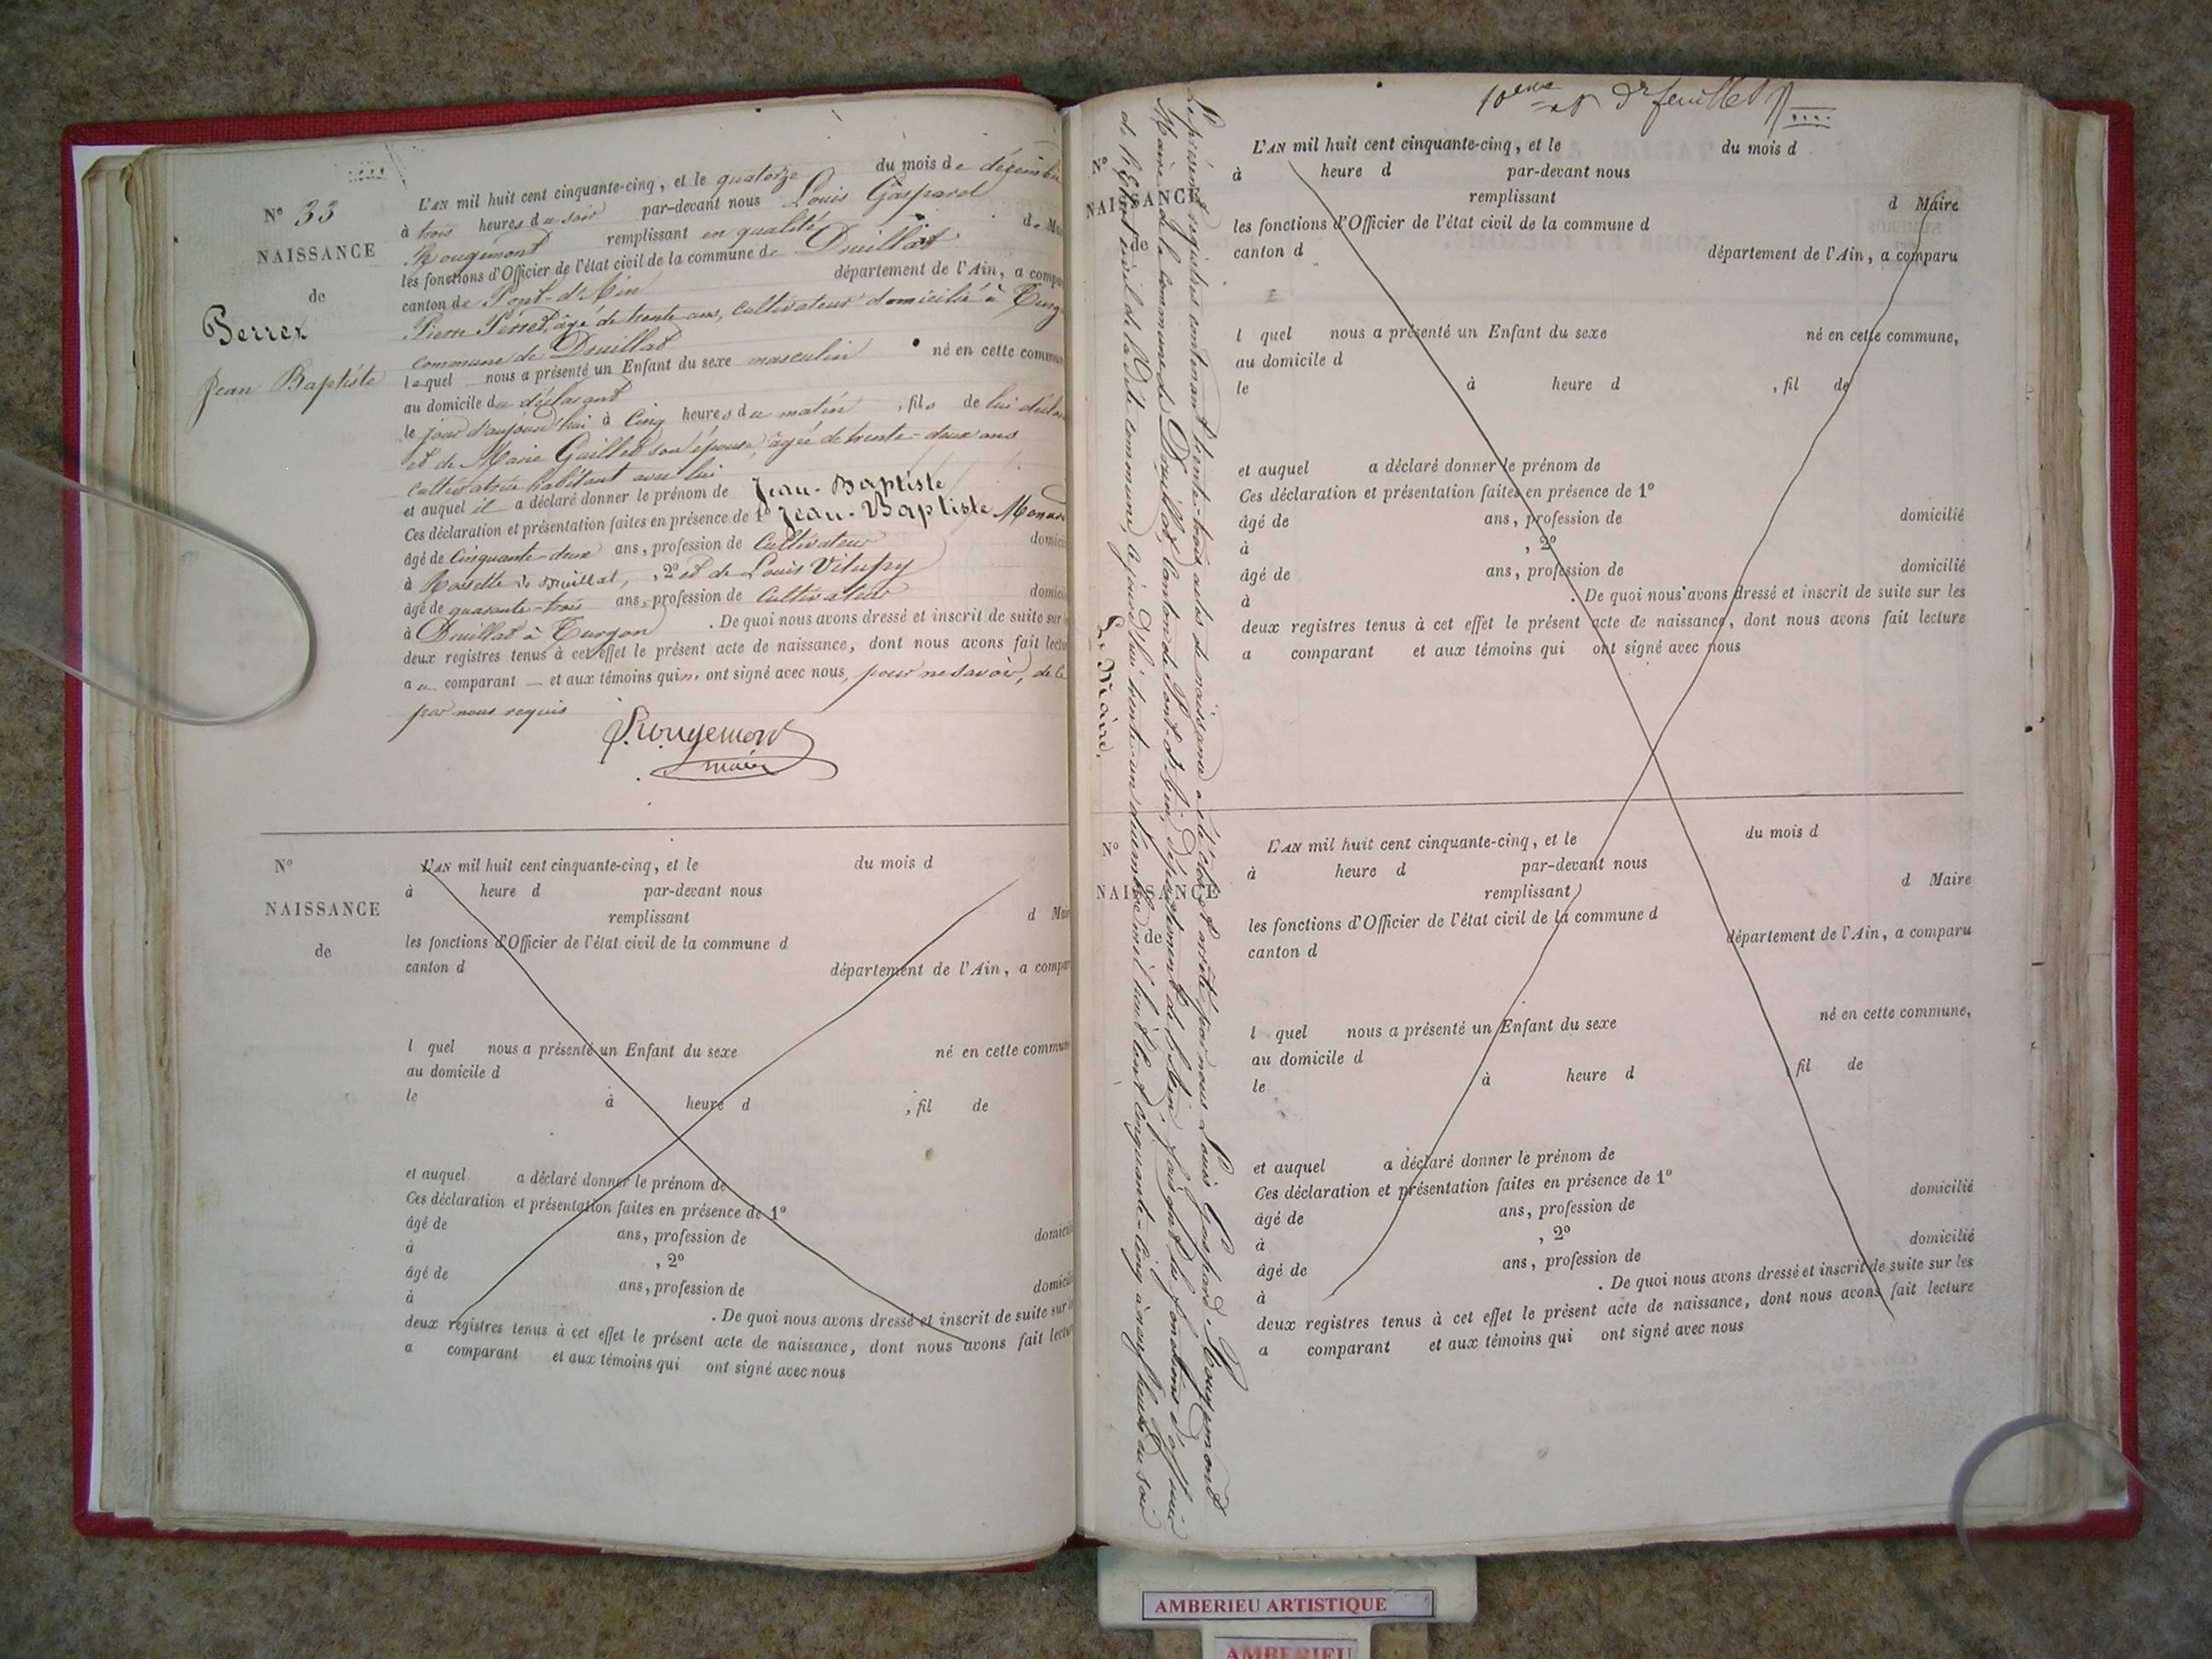 N° 33
NAISSANCE
de
Perret
Jean Baptiste
L'AN mil huit cent cinquante-cinq, et le quatorze du mois de décembre
à trois heures du soir par-devant nous Louis Gaspard
Rougemont remplissant en qualité de Mai
les fonctions d'Officier de l'état civil de la commune de Druillat
canton de Pont-d'Ain département de l'Ain, a compa
Pierre Perret, âgé de trente ans, cultivateur domicilié à Turg
commune de Druillat
lequel nous a présenté un Enfant du sexe masculin né en cette commun
au domicile du déclarant
le jour d'aujourd'hui à cinq heures du matin, fils de lui décla
et de Marie Guillet son épouse, âgée de trente-deux ans
cultivatrice habitant avec lui
et auquel il a déclaré donner le prénom de Jean-Baptiste
Ces déclaration et présentation faites en présence de 1° Jean-Baptiste
âgé de Cinquante-deux ans, profession de Cultivateur domici
à Rossette de Druillat, 2° et de Louis Vitupry
âgé de quarante-trois ans, profession de Cultivateur domici
à Druillat à Turgon. De quoi nous avons dressé et inscrit de suite sur
deux registres tenus à cet effet le présent acte de naissance, dont nous avons fait lectu
au comparant et aux témoins qui n'ont signé avec nous, pour ne savoir, de ce
par nous requis
Rougemont
maire
N°
NAISSANCE
de
L'AN mil huit cent cinquante-cinq, et le du mois d
à heure d par-devant nous
remplissant d Mair
les fonctions d'Officier de l'état civil de la commune d
canton d département de l'Ain, a compar
l quel nous a présenté un Enfant du sexe né en cette commun
au domicile d
le à heure d , fil de
et auquel a déclaré donner le prénom de
Ces déclaration et présentation faites en présence de 1°
âgé de ans, profession de domicil
à , 2°
âgé de ans, profession de domicili
à . De quoi nous avons dressé et inscrit de suite sur l
deux registres tenus à cet effet le présent acte de naissance, dont nous avons fait lectur
a comparant et aux témoins qui ont signé avec nous
10eme et Dr feuillet
N°
NAISSANCE
de
L'AN mil huit cent cinquante-cinq, et le du mois d
à heure d par-devant nous
remplissant d Maire
les fonctions d'Officier de l'état civil de la commune d
canton d département de l'Ain, a comparu
l quel nous a présenté un Enfant du sexe né en cette commune,
au domicile d
le à heure d , fil de
et auquel a déclaré donner le prénom de
Ces déclaration et présentation faites en présence de 1°
âgé de ans, profession de domicilié
à , 2°
âgé de ans, profession de domicilié
à . De quoi nous avons dressé et inscrit de suite sur les
deux registres tenus à cet effet le présent acte de naissance, dont nous avons fait lecture
a comparant et aux témoins qui ont signé avec nous
N°
NAISSANCE
de
L'AN mil huit cent cinquante-cinq, et le du mois d
à heure d par-devant nous
remplissant d Maire
les fonctions d'Officier de l'état civil de la commune d
canton d département de l'Ain, a comparu
l quel nous a présenté un Enfant du sexe né en cette commune,
au domicile d
le à heure d , fil de
et auquel a déclaré donner le prénom de
Ces déclaration et présentation faites en présence de 1°
âgé de ans, profession de domicilié
à , 2°
âgé de ans, profession de domicilié
à . De quoi nous avons dressé et inscrit de suite sur les
deux registres tenus à cet effet le présent acte de naissance, dont nous avons fait lecture
a comparant et aux témoins qui ont signé avec nous
Le présent registre contenant trente-trois actes de naissance a été clos et arrêté par nous Louis Gaspard Rougemont
Maire de la commune de Druillat, Canton de Pont-d'Ain, département de l'Ain, faisant les fonctions d'officier
de l'Etat civil de la dite commune, aujourd'hui trente-un décembre mil huit cent cinquante-cinq à neuf heures du soir
Le Maire,
AMBERIEU ARTISTIQUE
AMBERIEU